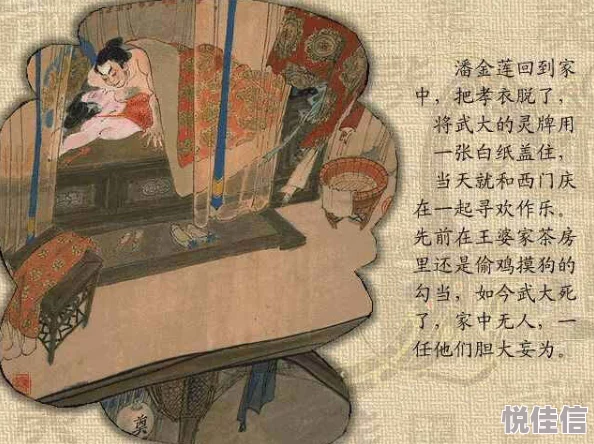 潘金莲回到家
中，把孝衣脱了，
将武大的灵牌用
一张白纸盖住，
当天就和西门庆
在一起寻欢作乐。
先前在王婆家茶房
里还是偷鸡摸狗的
勾当，如今武大死
了，家中无人，一
任他们胆大妄为。
奠
悦佳信